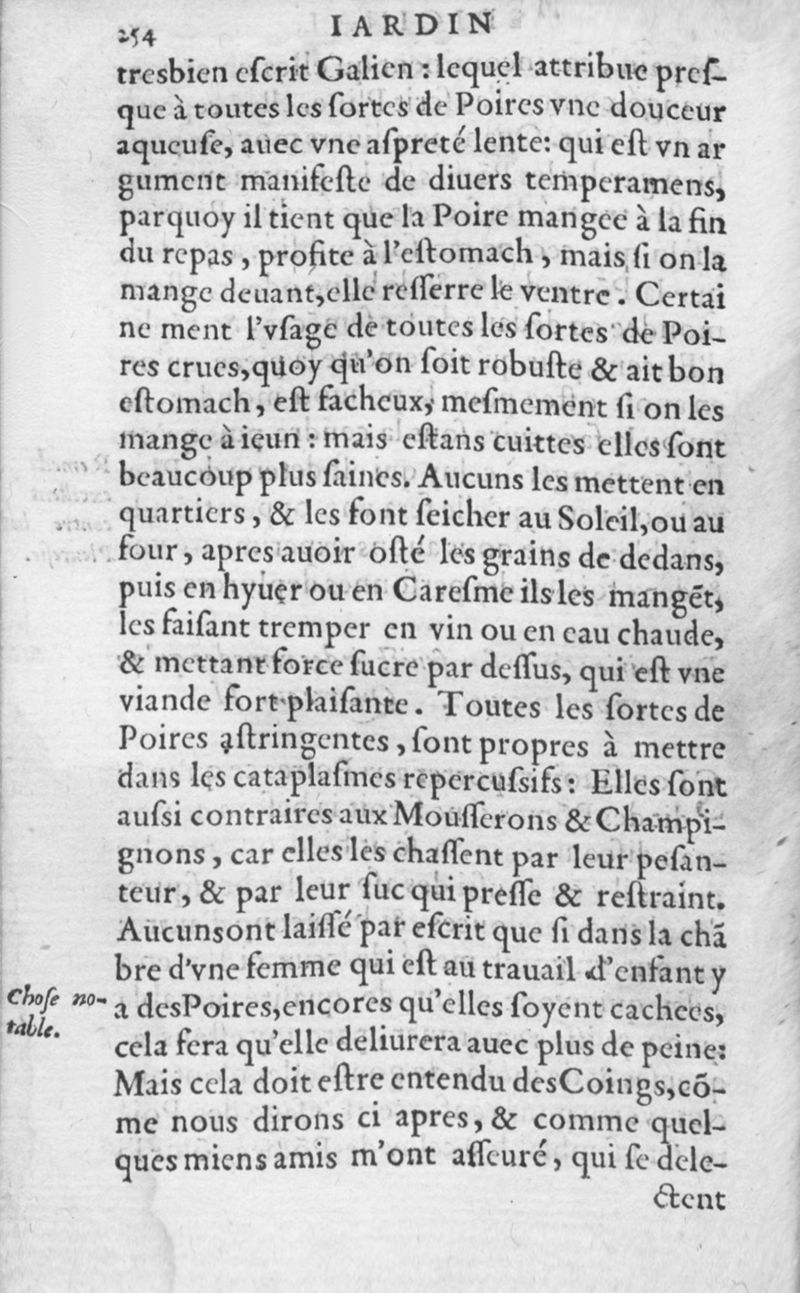 254
IARDIN
tresbien eſcrit Galien : lequel attribue preſ-
que à toutes les ſortes de Poires vne douceur
aqueuſe, auec vne aſpreté lente: qui eſt vn ar
gument manifeſte de diuers temperamens,
parquoy il tient que la Poire mangee à la fin
du repas, profite à l'eſtomach, mais ſi on la
mange deuant, elle reſſerre le ventre. Certai
ne ment l'vſage de toutes les ſortes de Poi-
res crues, quoy qu'on ſoit robuſte & ait bon
eſtomach, eſt facheux, meſmement ſi on les
mange à ieun : mais eſtans cuittes elles ſont
beaucoup plus ſaines. Aucuns les mettent en
quartiers, & les font ſeicher au Soleil, ou au
four, apres auoir oſté les grains de dedans,
puis en hyuer ou en Careſme ils les mangẽt,
les faiſant tremper en vin ou en eau chaude,
& mettant force ſucre par deſſus, qui eſt vne
viande fort plaiſante. Toutes les ſortes de
Poires aſtringentes, ſont propres à mettre
dans les cataplaſmes repercuſsifs: Elles ſont
auſsi contraires aux Mouſſerons & Champi-
gnons, car elles les chaſſent par leur peſan-
teur, & par leur ſuc qui preſſe & reſtraint.
Aucunsont laiſſé par eſcrit que ſi dans la chã
bre d'vne femme qui eſt au trauail d'enfant y
Choſe no-
table.
a desPoires, encores qu'elles ſoyent cachees,
cela fera qu'elle deliurera auec plus de peine:
Mais cela doit eſtre entendu desCoings, cõ-
me nous dirons ci apres, & comme quel-
ques miens amis m'ont aſſeuré, qui ſe dele-
ctent